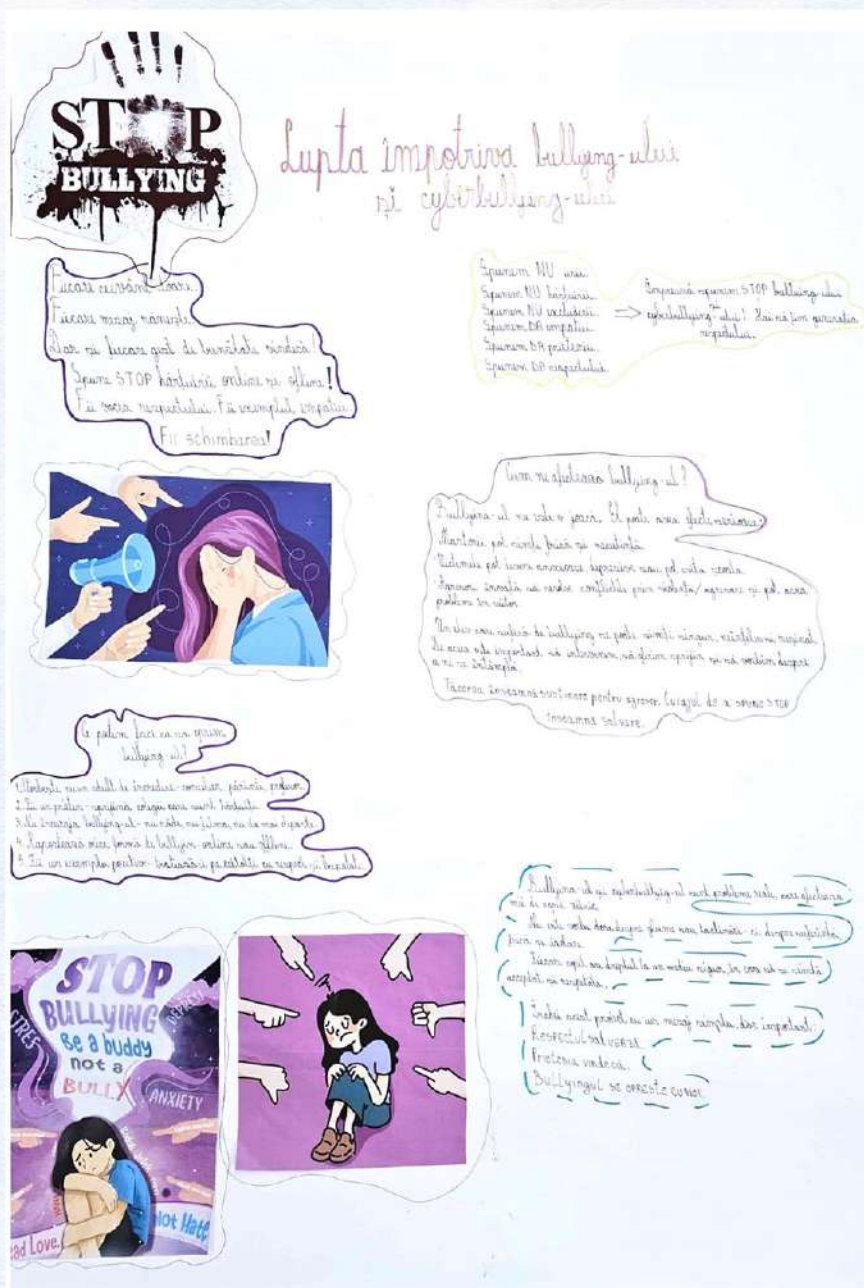 STOP
BULLYING
Lupta împotriva bullying-ului
și cyberbullying-ului
Fiecare cuvânt doare.
Fiecare mesaj rănește.
Dar și fiecare gest de bunătate vindecă!
Spune STOP hărțuirii online și offline!
Fii vocea respectului. Fii exemplul empatiei.
Fii schimbarea!
Spunem NU urii.
Spunem NU hărțuirii.
Spunem NU excluderii.
Spunem DA empatiei.
Spunem DA prieteniei.
Spunem DA respectului.
Împreună spunem STOP bullying-ului
și
cyberbullying-ului! Hai să fim generația
respectului.
Cum ne afectează bullying-ul?
Bullying-ul nu este o joacă. El poate avea efecte serioase:
Martorii pot simți frică și
Victimele pot anxietate, depresie sau pot evita școala.
învață să rezolve conflictele prin violență/agresare și pot avea
probleme în viitor.
Un elev care suferă de bullying se poate simți singur, neînțeles sau respins.
De aceea este important să intervenim, să oferim sprijin și să vorbim despre
ce se întâmplă.
Tăcerea înseamnă susținere pentru agresor. Curajul de a spune STOP
înseamnă salvare.
Ce putem face ca să oprim
bullying-ul?
1. Vorbește cu un adult de încredere-consilier, părinte, profesor.
2. Fii un prieten-sprijină colegii care sunt hărțuiți.
3. Nu încuraja bullying-ul- nu râde, nu filma, nu da mai departe.
4. Raportează orice formă de bullyin- online sau offline.
5. Fii un exemplu pozitiv- tratează-i pe ceilalți cu respect și
STOP
BULLYING
Be a buddy
not a
BULLY
STRES
DEPRESI
ANXIETY
ead Love,
Not Hate
Bullying-ul și cyberbullyig-ul sunt probleme reale, care afectează
mii de copii zilnic.
Nu este vorba doar despre glume sau tachinări- ci despre suferință,
frică și izolare.
Fiecare copil are dreptul la un mediu sigur, în care să se simtă
acceptat și respectat.
Închei acest proiect cu un mesaj simplu, dar important:
RESPECTUL SALVEAZĂ.
Prietenia vindecă.
BULLYingul SE OPREȘTE CU NOI.